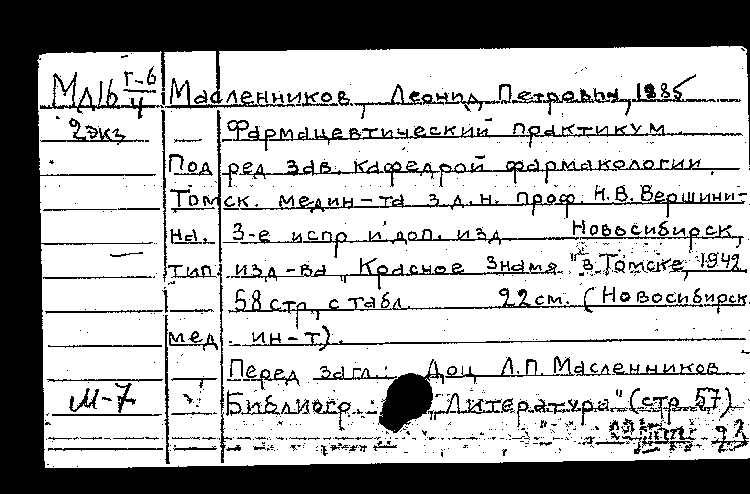 МД16 Г-6/4 Масленников, Леонид Петрович, 1885
2экз — Фармацевтический практикум
Под ред зав. кафедрой фармакологии
Томск. медин-та з.д.н. проф. Н.В. Вершини-
на. 3-е испр и доп. изд Новосибирск,
тип изд-ва "Красное Знамя" в Томске, 1942
58 стр., с табл. 22 см. (Новосибирск
мед. ин-т).
Перед загл.: Доц Л.П. Масленников
М-7 Библиогр.: "Литература" (стр 57)